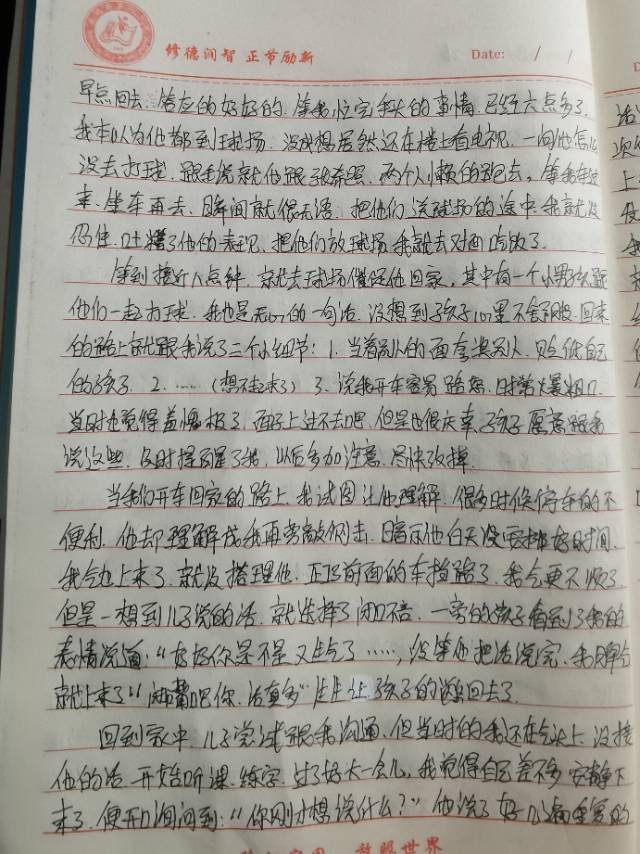 修德润智 正节励新
Date: / /
早点回去、答应的好好的、等我忙完手头的事情、已经六点多了、
我本以为他都到球场、没成想居然还在楼上看电视、一问他怎么
没去打球、跟我说就他跟弟弟、两个人懒的跑去、等我
来、坐车再去、瞬间就很无语、把他们送球场的途中、我就没
忍住、吐糟了他的表现、把他们放球场、我就去对面吃饭了、
等到接近八点钟、就去球场催促他回家、其中有一个小男孩跟
他们一起打球、我也是无心的一句话、没想到孩子心里不舒服、回来
的路上就跟我说了三个小细节:1.当着别人的面夸奖别人、贬低自己
的孩子、2.……(想不起来了) 3.说我开车容易路怒、时常大爆粗口、
当时也觉得羞愧极了、面子上过不去吧、但是也很庆幸、孩子愿意跟我
说这些、及时提醒了我、以后多加注意、尽快改掉、
当我们开车回家的路上、我试图让他理解、很多时候停车的不
便利、他却理解成我再旁敲侧击、暗示他白天没安排好时间、
我气也上来了、就没搭理他、正巧前面的车挡路了、我气更不顺了、
但是一想到儿子说的话、就选择了闭口不言、一旁的孩子看到了我的
表情说道:“妈妈你是不是又生气了……,没等他把话说完、我脾气
就上来了“闭嘴吧你、话真多”生生让孩子的话憋回去了、
回到家中、儿子尝试跟我沟通、但当时的我还在气头上、没接
他的话、开始听课、练字、过了好大一会儿、我觉得自己差不多安静下
来了、便开口询问到:“你刚才想说什么?”他说了好几遍重复的
放眼世界